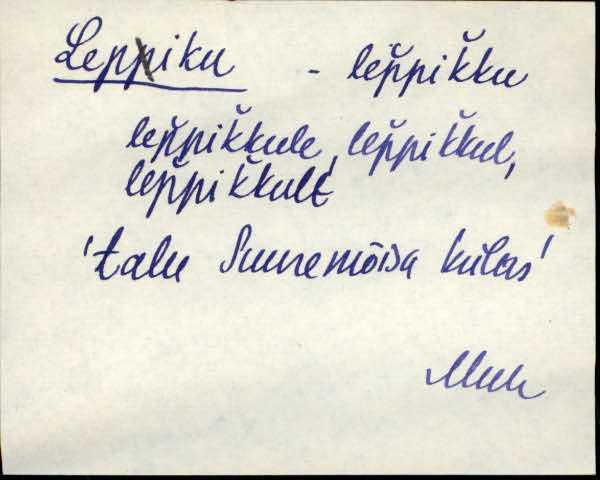 Leppiku - lep̌pik̆ku
lep̌pik̆kule, lep̌pik̆kul,
lep̌pik̆kult
'talu Suuremõisa külas'
Muh